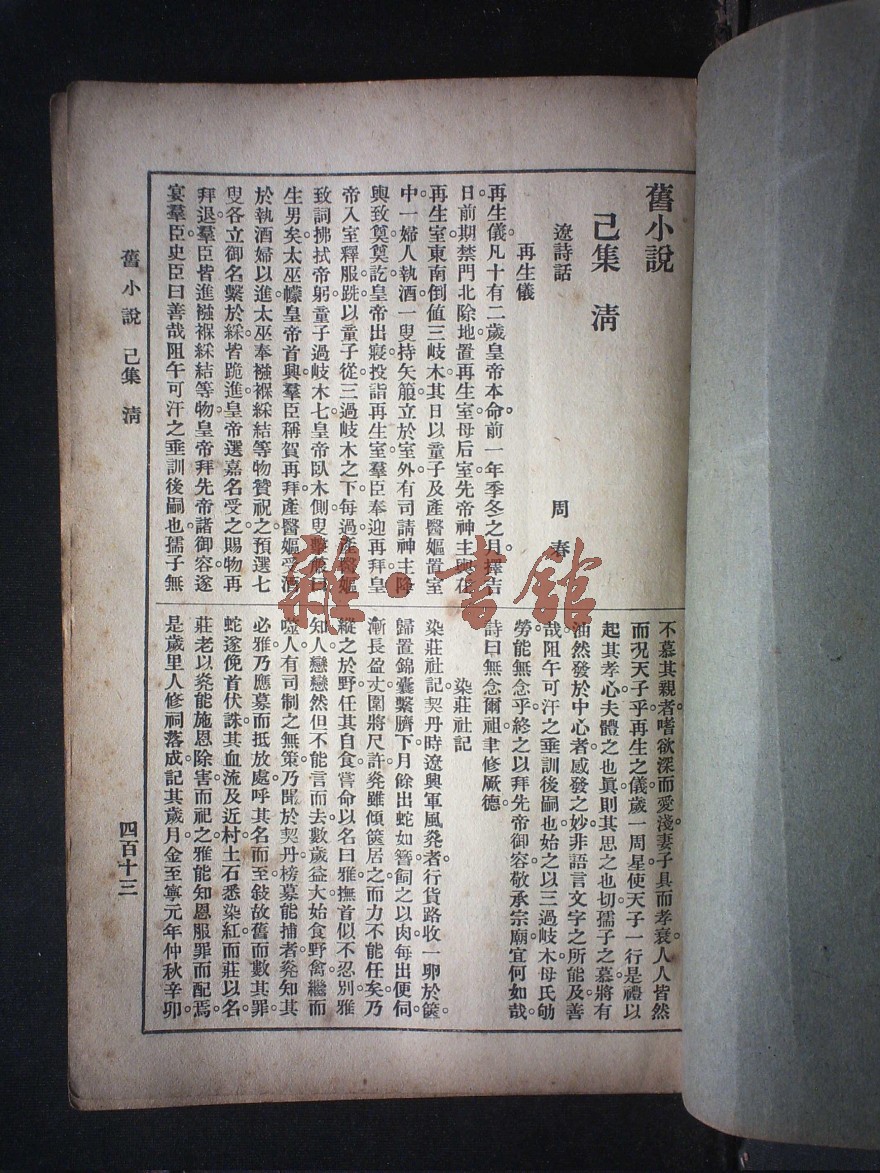 舊小說
己集　清
遼詩話　周　春
再生儀
再生儀。凡十有二歲。皇帝本命前一年季冬之月。擇吉
日。前期禁門北除地置再生室母后室先帝神主輿。在
再生室東南倒値三岐木。其日以童子及產醫嫗置室
中。一婦人執酒。一叟持矢箙。立於室外。有司請神主降
輿致奠。奠訖。皇帝出寢殿詣再生室。羣臣奉迎再拜。皇
帝入室釋服跣。以童子從三過岐木之下。每過產醫嫗
致詞拂拭帝躬。童子過岐木七。皇帝臥木側。叟擊箙曰。
生男矣。太巫幪皇帝首興。羣臣稱賀再拜。產醫嫗受酒
於執酒婦以進。太巫奉襁褓綵結等物贊祝之。預選七
叟。各立御名繫於綵。皆跪進。皇帝選嘉名受之。賜物再
拜退。羣臣皆進襁褓綵結等物。皇帝拜先帝諸御容。遂
宴羣臣。史臣曰。善哉阻午可汗之垂訓後嗣也。孺子無
不慕其親者。嗜欲深而愛淺。妻子具而孝衰。人人皆然。
而况天子乎。再生之儀。歲一周星。使天子一行是禮。以
起其孝心。夫體之也眞。則其思之也切。孺子之慕。將有
油然發於中心者。感發之妙。非語言文字之所能及。善
哉阻午可汗之垂訓後嗣也。始之以三過岐木。母氏劬
勞。能無念乎。終之以拜先帝御容。敬承宗廟。宜何如哉。
詩曰。無念爾祖。聿修厥德。
染莊社記
染莊社記。契丹時。遼興軍風堯者。行貨路收一卵於篋。
歸置錦囊繫臍下。月餘出蛇如簪。飼之以肉。每出便伺。
漸長盈丈。圍將尺許。堯雖傾篋居之。而力不能任矣。乃
縱之於野。任其自食。嘗命以名曰雅。撫首似不忍別。雅
知人戀戀然。但不能言而去。數歲益大。始食野禽。繼而
噬人。有司制之無策。乃聞於契丹。榜募能捕者。堯知其
必雅。乃應募而抵放處。呼其名而至。敍故舊而數其罪。
蛇遂俛首伏誅。其血流及近村。土石悉染紅。而莊以名。
莊老以堯能施恩除害而祀之。雅能知恩服罪而配焉。
是歲里人修祠落成。記其歲月。金至寧元年仲秋辛卯。
舊小說　己集　清
四百十三
雜·書館